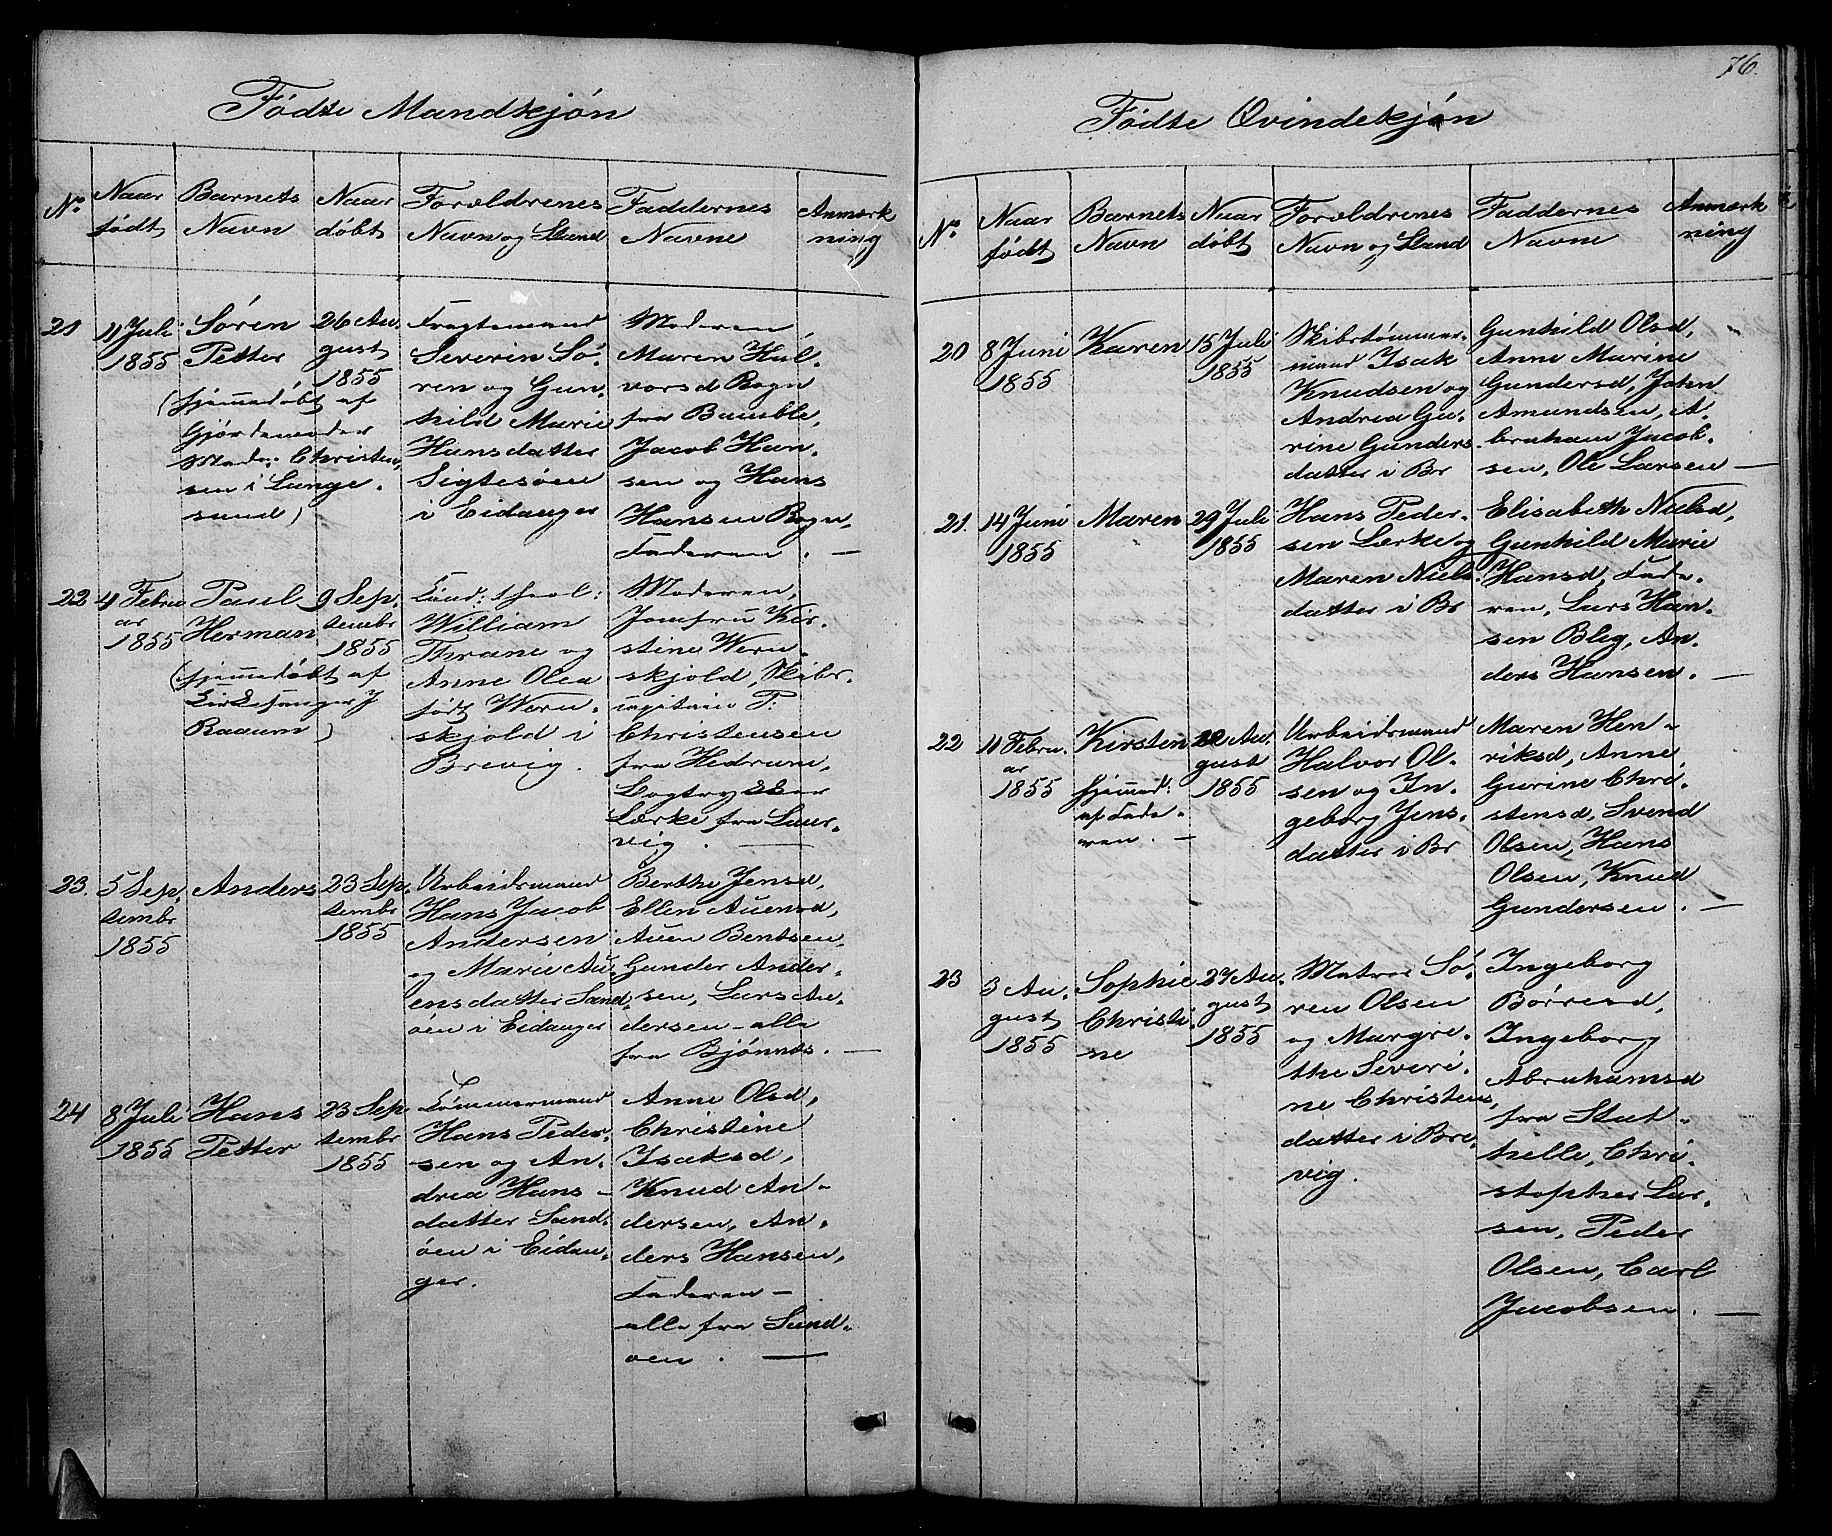 76.
Fødte Mandkjøn
No
Naar født
Barnets Navn
Naar døbt
Forældrenes Navn og Stand
Faddernes Navne
Anmærkning
21
11 Juli
1855
Søren
Petter
(hjemmedøbt af
Gjordemoder
Mad: Christen,
sen i Lange,
sund)
26 Au,
gust
1855
Fragtemand
Severin Sø,
ren og Gun,
hild Marie
Hansdatter
Sigtesøen
i Eidanger
Moderen,
Maren Hal,
vorsd Bogn
fra Bamble,
Jacob Han,
sen og Hans
Hansen Bogn,
Faderen. —
22
4 Febru
ar
1855
Paul
Herman
(hjemmedøbt af
Kirkesanger J
Raaum)
9 Sep,
tembr
1855
Cand: theol:
William
Thrane og
Anne Olea
født Wern,
skjold i
Brevig.
Moderen,
Jomfru Kir,
stine Wern,
skjold, Skibs,
capitain T:
Christensen
fra Hedrum,
Bogtrykker
Lærke fra Laur,
vig. —
23.
5 Sep,
tembr
1855
Anders
23 Sep,
tembr
1855
Arbeidsmand
Hans Jacob
Andersen
og Marie Au,
ensdatter Sand,
øen i Eidanger
Berthe Jensd,
Ellen Auensd,
Auen Bentsen,
Gunder Ander,
sen, Lars An,
dersen - alle
fra Bjønnes. —
24
8 Juli
1855
Hans
Petter
23 Sep
tembr
1855
Tømmermand
Hans Peder,
sen og An,
drea Hans-
datter Sand,
øen i Eidan,
ger.
Anne Olsd,
Christine
Isaksd,
Knud An-
dersen, An,
ders Hansen,
Faderen -
alle fra Sand,
øen. —
Fødte Qvindekjøn
No
Naar født
Barnets Navn
Naar døbt
Forældrenes Navn og Stand
Faddernes Navne
Anmærkning
20
8 Juni
1855
Karen
15 Juli
1855
Skibstømmer,
mand Isak
Knudsen og
Andrea Gu,
rine Gunders,
datter i Br
Gunhild Olsd,
Anne Marine
Gundersd, John
Amundsen, A,
braham Jacob,
sen, Ole Larsen —
21.
14 Juni
1855
Maren
29 Juli
1855
Hans Peder,
sen Lærke og
Maren Niels,
datter i Br
Elisabeth Nielsd,
Gunhild Marie
Hansd, Fade,
ren, Lars Han,
sen Bleg, An,
ders Hansen. —
22
11 Febru,
ar
1855
Kirsten
hjemmed:
af Fade,
ren. —
Au,
gust
1855
Arbeidsmand
Halvor Ol,
sen og In,
geborg Jens,
datter i Br
Maren Hen,
riksd, Anne
Gurine Chri,
stensd, Svend
Olsen, Hans
Olsen, Knud
Gundersen. —
23
3 Au,
gust
1855
Sophie
Christi,
ne
27 Au,
gust
1855
Matros Sø,
ren Olsen
og Margre,
the Severi,
ne Christens,
datter i Bre,
vig.
Ingeborg
Børresd,
Ingeborg
Abrahamsd
fra Stat,
helle, Chri,
stopher Lar,
sen, Peder
Olsen, Carl
Jacobsen. —